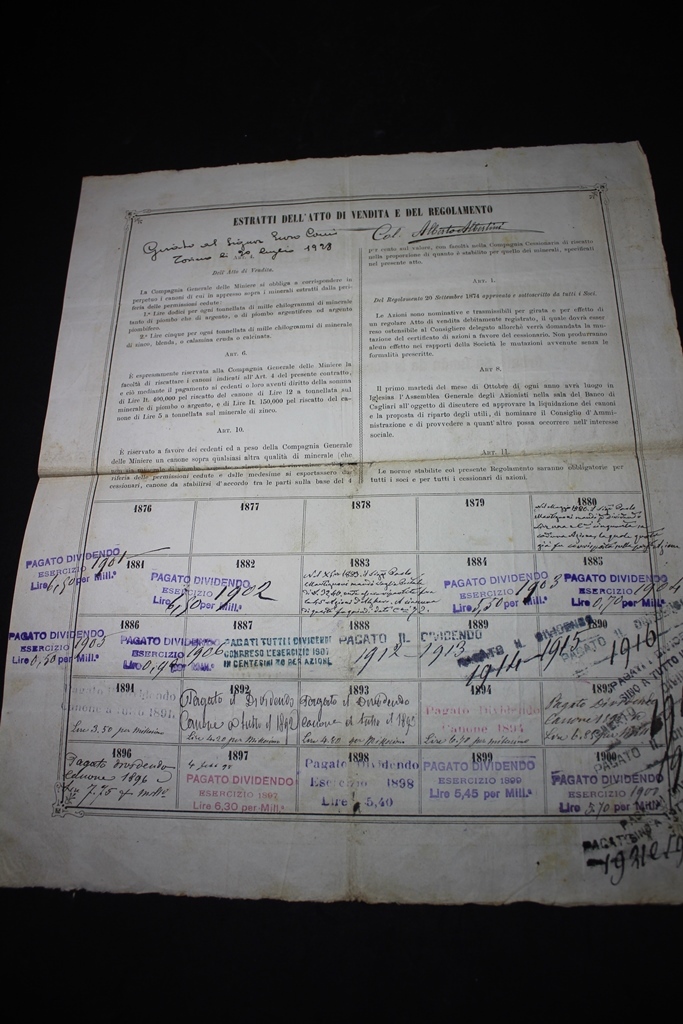 ESTRATTI DELL'ATTO DI VENDITA E DEL REGOLAMENTO
Girato al Signor
Torino li 20 luglio 1928
Dell'Atto di Vendita.
La Compagnia Generale delle Miniere si obbliga a corrispondere in
perpetuo i canoni di cui in appresso sopra i minerali estratti dalla
delle permissioni cedute:
1.º Lire dodici per ogni tonnellata di mille chilogrammi di minerale
tanto di piombo che di argento, o di piombo argentifero ed argento
piombifero.
2.º Lire cinque per ogni tonnellata di mille chilogrammi di minerale
di zinco, blenda, o calamina cruda o calcinata.
ART. 6.
È espressamente riservata alla Compagnia Generale delle Miniere la
facoltà di riscattare i canoni indicati all'Art. 4 del presente contratto,
e ciò mediante il pagamento ai cedenti o loro aventi diritto della somma
di Lire It. 400,000 pel riscatto del canone di Lire 12 a tonnellata sul
minerale di piombo o argento, e di Lire It. 150,000 pel riscatto del
none di Lire 5 a tonnellata sul minerale di zinco.
ART. 10.
È riservato a favore dei cedenti ed a peso della Compagnia Generale
delle Miniere un canone sopra qualsiasi altra qualità di minerale (che
riferia delle permissioni cedute e delle medesime si esportassero da
cessionari, canone da stabilirsi d'accordo tra le parti sulla base del 4
per cento sul valore, con facoltà nella Compagnia Generale di riscatto
nella proporzione di quanto è stabilito per quello dei minerali, specificati
nel presente atto.
ART. 1.
Del Regolamento 20 Settembre 1874 approvato e sottoscritto da tutti i Soci.
Le Azioni sono nominative e trasmissibili per girata e per effetto di
un regolare Atto di vendita debitamente registrato, il quale dovrà esser
reso ostensibile al Consigliere delegato allorchè verrà domandata la mu-
tazione del certificato di azioni a favore del cessionario. Non produrranno
alcun effetto nei rapporti della Società le mutazioni avvenute senza le
formalità prescritte.
ART 8.
Il primo martedì del mese di Ottobre di ogni anno avrà luogo in
Iglesias l'Assemblea Generale degli Azionisti nella sala del Banco di
Cagliari all'oggetto di discutere ed approvare la liquidazione dei canoni
e la proposta di riparto degli utili, di nominare il Consiglio d'Ammi-
nistrazione e di provvedere a quant'altro possa occorrere nell'interesse
sociale.
ART. 11.
Le norme stabilite col presente Regolamento saranno obbligatorie per
tutti i soci e per tutti i cessionari di azioni.
1876 1877 1878 1879 1880
PAGATO DIVIDENDO
ESERCIZIO 1901
Lire 6,50 per Mill.ª
1881 1882 1883 1884 1885
PAGATO DIVIDENDO
ESERCIZIO 1902
per Mill.ª
PAGATO DIVIDENDO
ESERCIZIO 1903
per Mill.ª
PAGATO DIVIDENDO
ESERCIZIO
Lire 0,70 per Mill.ª
1886 1887 1888 1889 1890
PAGATO DIVIDENDO
ESERCIZIO
Lire 0,50 per Mill.ª
PAGATO DIVIDENDO
ESERCIZIO 1906
per Mill.ª
PAGATI TUTTI I DIVIDENDI
COMPRESO L'ESERCIZIO 1907
IN CENTESIMI 70 PER AZIONE
PAGATO IL DIVIDENDO
1912-1913
PAGATO IL DIVIDENDO
1914-1915
PAGATO IL
1916
1891 1892 1893 1894 1895
Pagato Dividendo
Canone a tutto 1891.
Lire 3.50 per Millesimo
Pagato il Dividendo
Canone a tutto il 1892
Lire 4.20 per Millesimo
Pagato il Dividendo
Canone a tutto il 1893
per Millesimo
Pagato Dividendo
Canone 1894
per millesimo
Pagato Dividendo
Canone
1896 1897 1898 1899 1900
Pagato dividendo
Canone 1896
7.75
PAGATO DIVIDENDO
ESERCIZIO 1897
Lire 6,30 per Mill.ª
Pagato Dividendo
Esercizio 1898
Lire 5,40
PAGATO DIVIDENDO
ESERCIZIO 1899
Lire 5,45 per Mill.ª
PAGATO DIVIDENDO
ESERCIZIO 1900
Lire 5.70 per Mill.ª